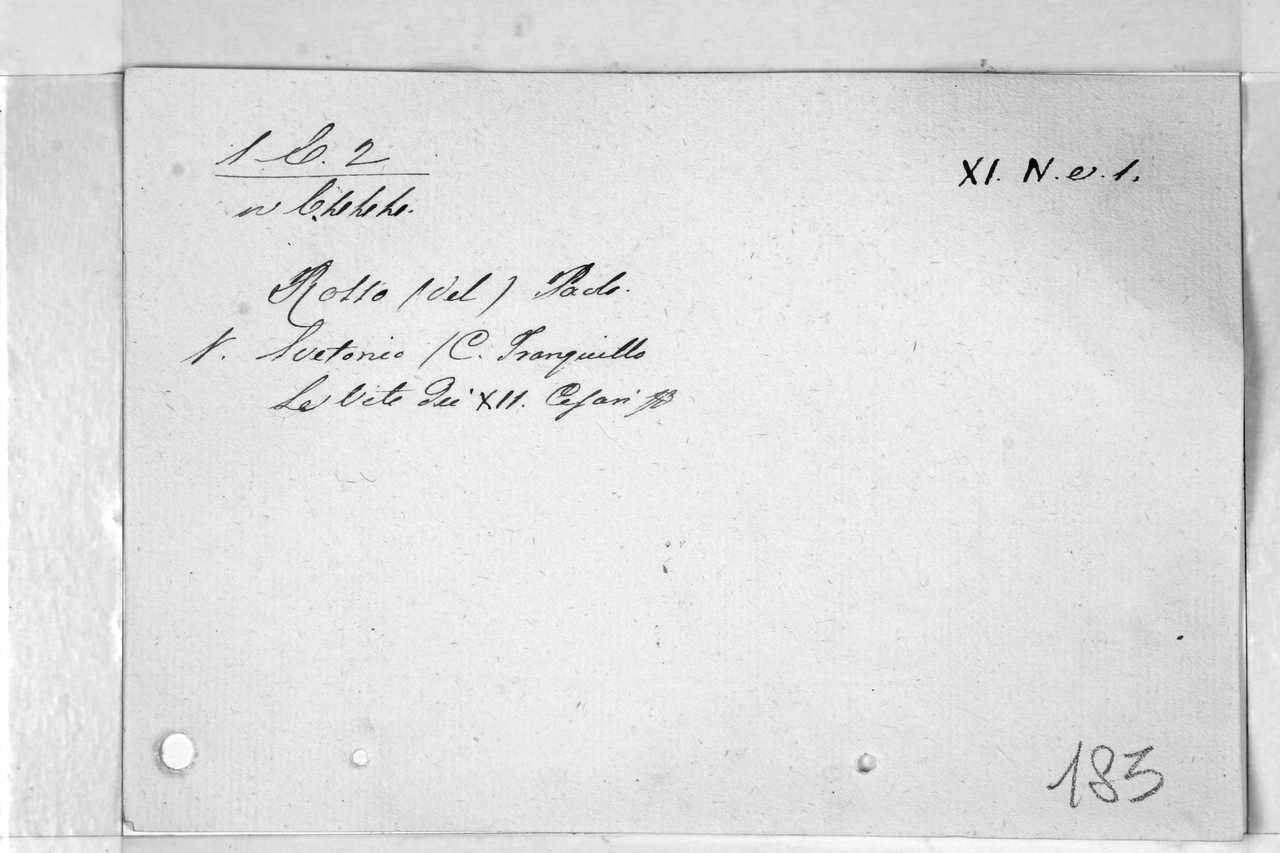 1. C. 2
XI. N. e. 1.
Rosso (del) Paolo.
V. Svetonio (C. Tranquillo
Le Vite dei XII. Cesari
183